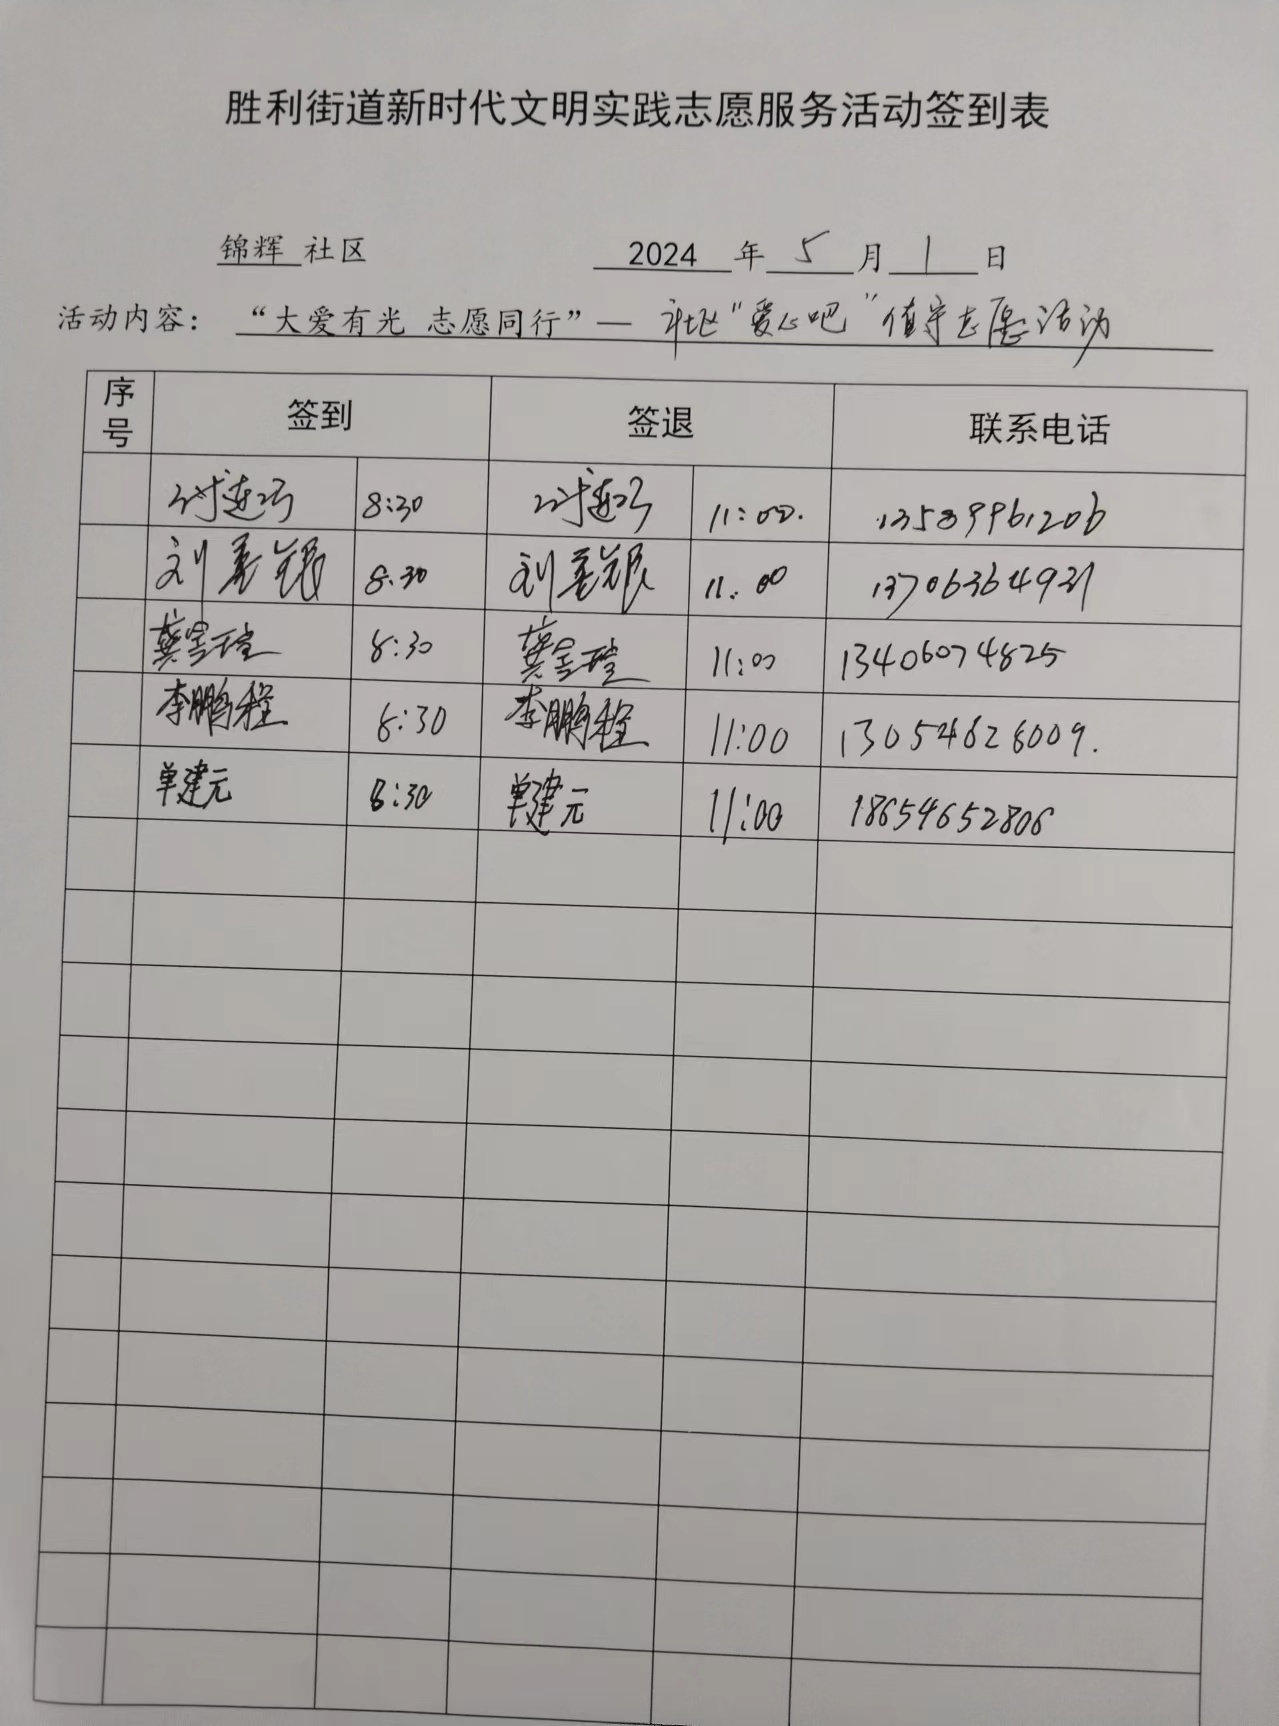 胜利街道新时代文明实践志愿服务活动签到表
锦辉 社区 2024 年 5 月 1 日
活动内容： “大爱有光 志愿同行”— 社区“爱心吧”值守志愿活动
序号 签到 签退 联系电话
8:30 11:00. 13589961206
刘善银 8:30 刘善银 11:00 13706364931
龚金瑝 8:30 龚金瑝 11:00 13406074825
李鹏程 8:30 李鹏程 11:00 13054628009.
单建元 8:30 单建元 11:00 18654652806